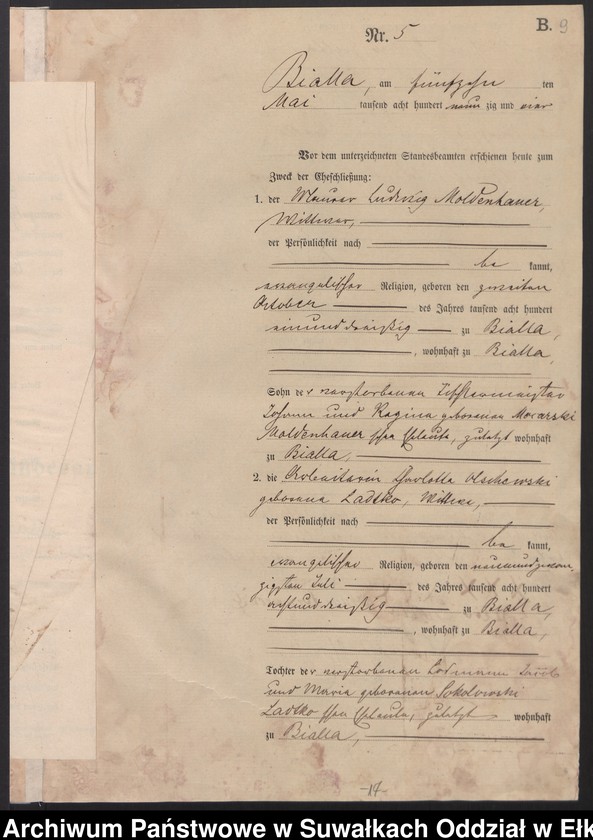 B. 9
Nr. 5
Bialla, am fünfzehn ten
Mai tausend acht hundert neun zig und vier
Vor dem unterzeichneten Standesbeamten erschienen heute zum
Zweck der Eheschließung:
1. der Maurer Ludwig Moldenhauer,
Wittwer,
der Persönlichkeit nach
be kannt,
evangelischer Religion, geboren den zweiten
October des Jahres tausend acht hundert
einunddreißig zu Bialla,
, wohnhaft zu Bialla,
Sohn der verstorbenen Tischlermeister
Johann und Regina geborenen Morarski
Moldenhauer schen Eheleute, zuletzt wohnhaft
zu Bialla,
2. die Arbeiterin Charlotte Olschewski
geborene Ladtko, Wittwe,
der Persönlichkeit nach
be kannt,
evangelischer Religion, geboren den neunundzwan-
zigsten Juli des Jahres tausend acht hundert
achtunddreißig zu Bialla,
, wohnhaft zu Bialla,
Tochter der verstorbenen
und Maria geborenen Sokolowski
Ladtko schen Eheleute, zuletzt wohnhaft
zu Bialla,
-17-
Archiwum Państwowe w Suwałkach Oddział w Ełk